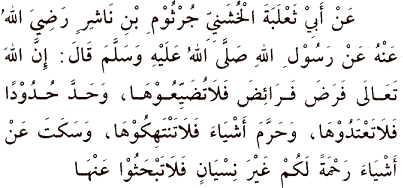 عَنْ أَبِيْ ثَعْلَبَةَ الْخُشَنِيِّ جُرْثُوْمِ بْنِ نَاشِرٍ رَضِيَ اللهُ
عَنْهُ عَنْ رَسُوْلِ اللهِ صَلَّى اللهُ عَلَيْهِ وَسَلَّمَ قَالَ: إِنَّ اللهَ
تَعَالَى فَرَضَ فَرَائِضَ فَلَاتُضَيِّعُوْهَا، وَحَدَّ حُدُوْدًا
فَلَاتَعْتَدُوْهَا، وَحَرَّمَ أَشْيَاءَ فَلَاتَنْتَهِكُوْهَا، وَسَكَتَ عَنْ
أَشْيَاءَ رَحْمَةً لَكُمْ غَيْرَ نِسْيَانٍ فَلَاتَبْحَثُوْا عَنْهَا